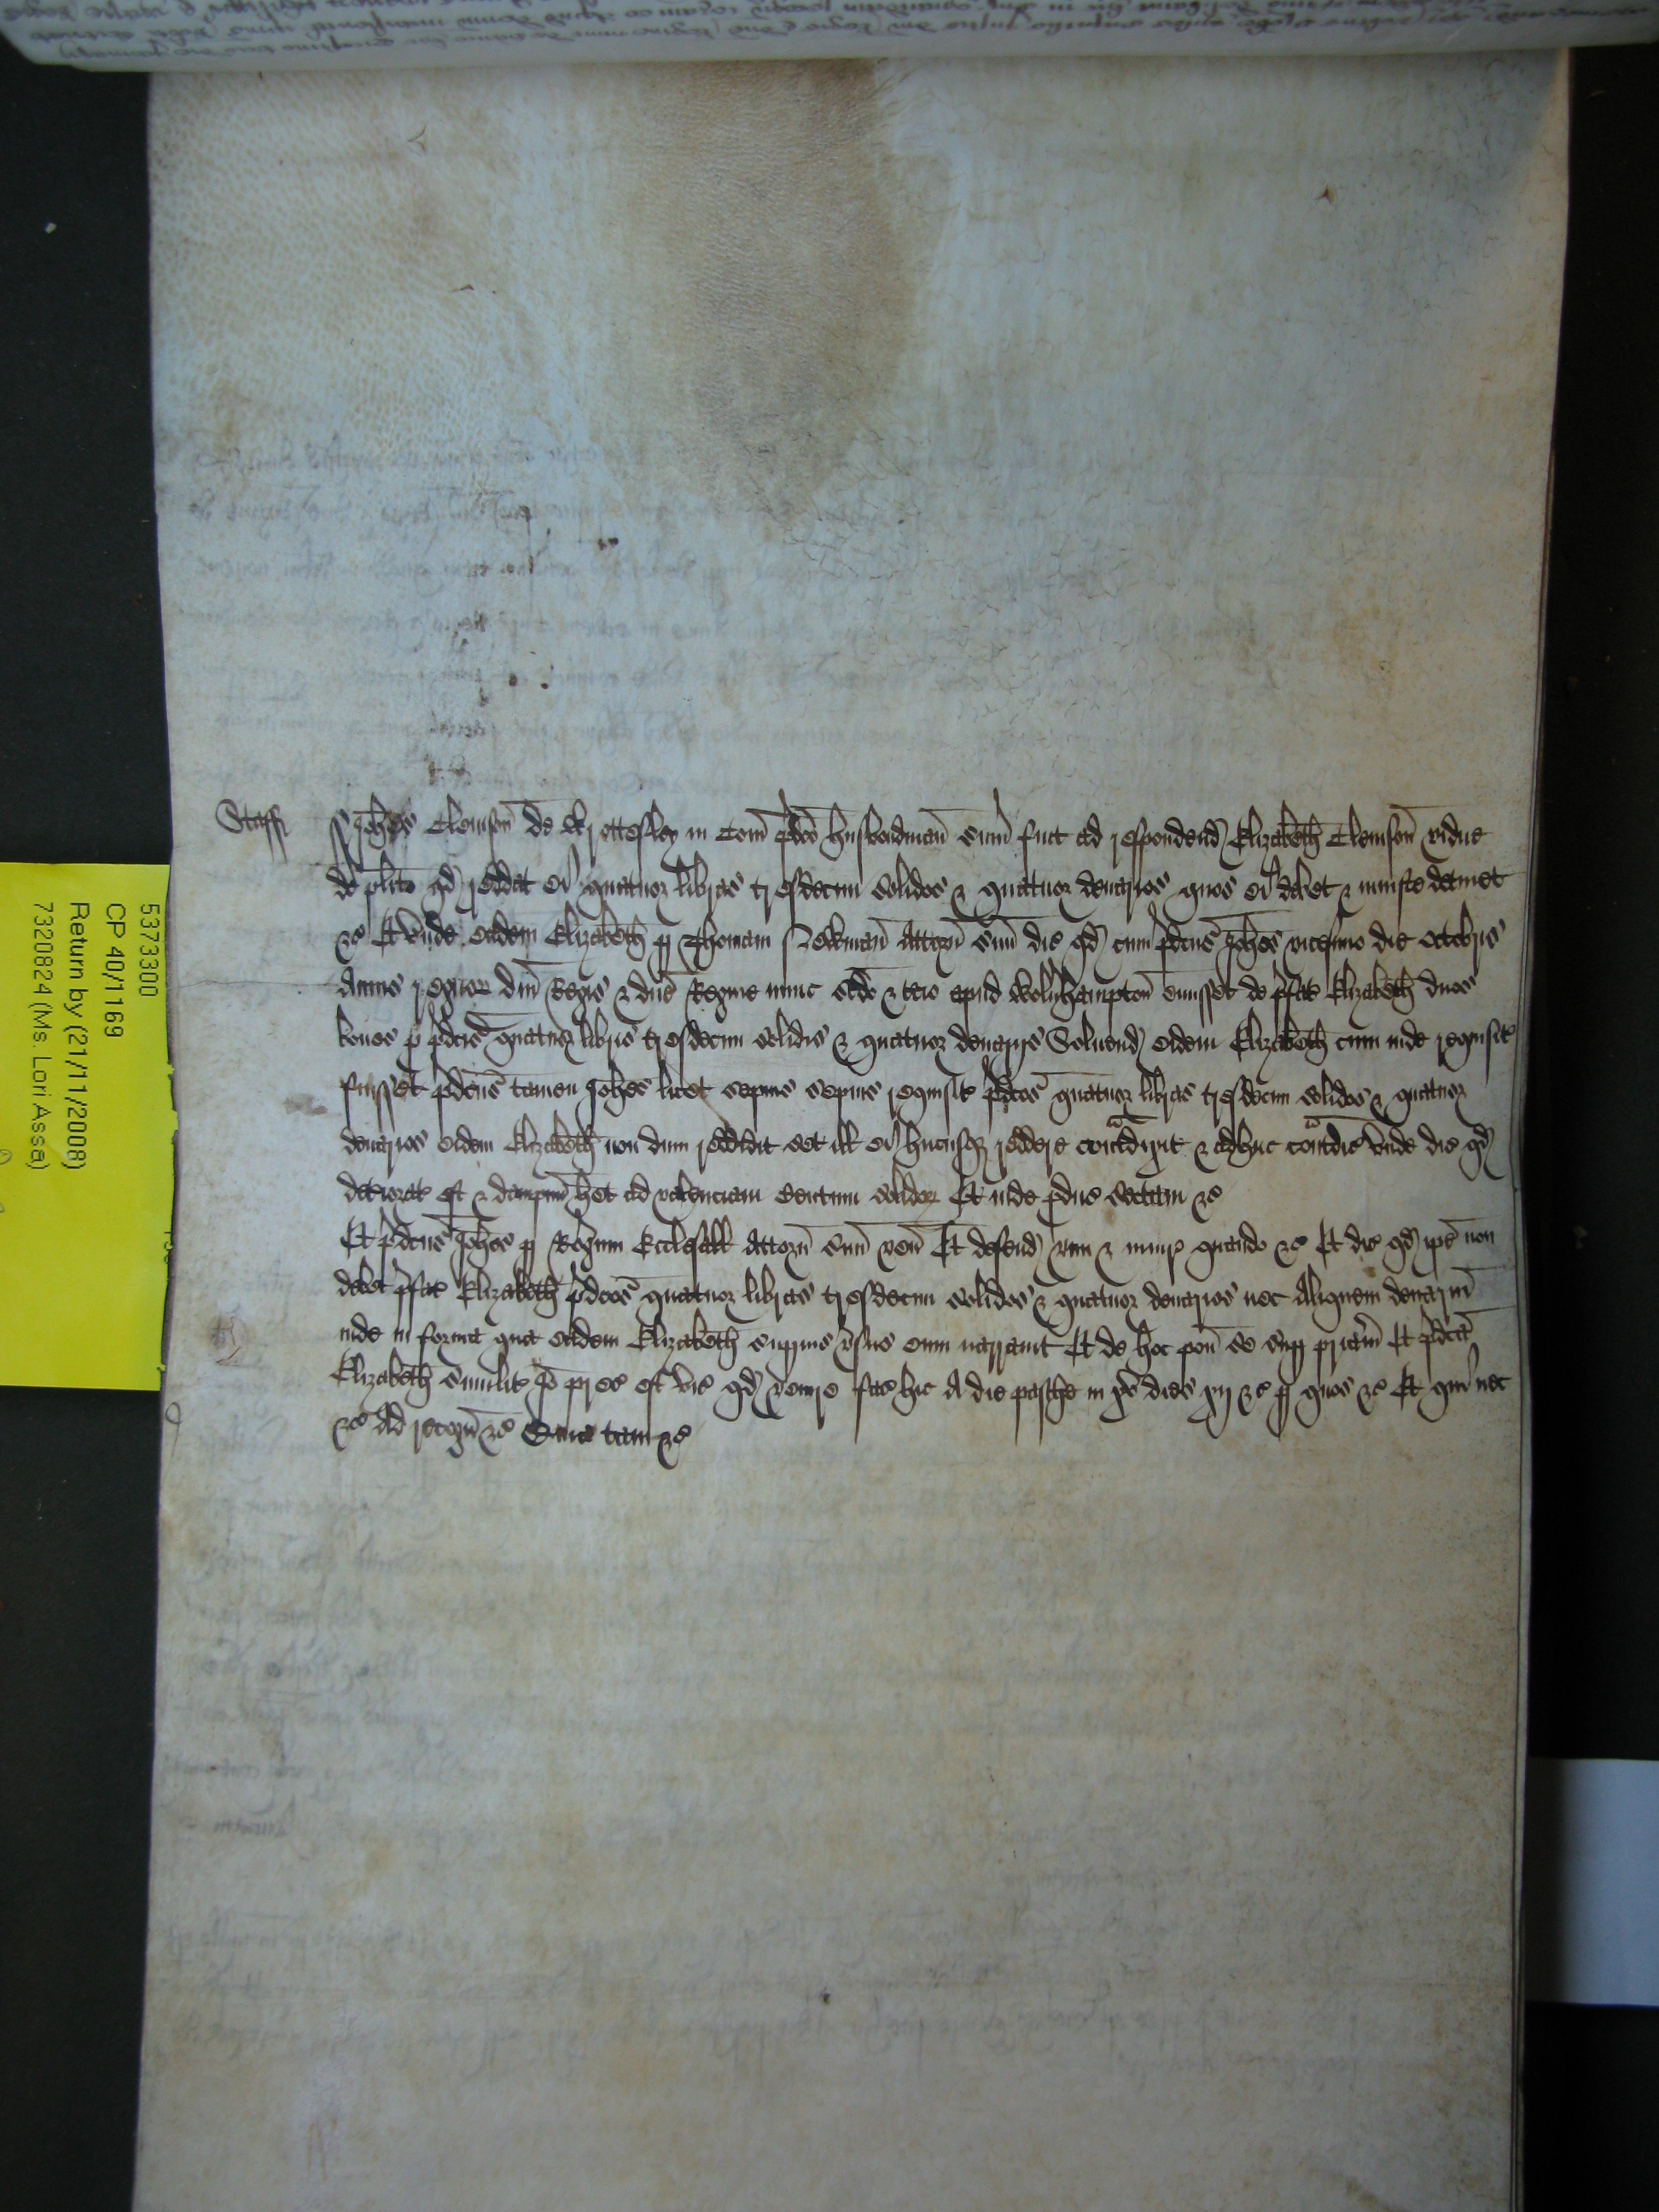 Staff
Johes Clemson de Wrottesley in Com pdco husbondman sum fuit ad respondend Elizabeth Clemson vidue
de plito qd reddat ei quatuor libras tresdecim solidos & quatuor denarios quos ei debet & iniuste detinet
&c Et unde eadem Elizabeth p Thomam Attorn suu dic qd cum pdcus Johes vicesimo die Octobris
Annis regnor dni Regis & dne Regine nunc scdo & tcio apud Wolu̓hampton emisset de pfat Elizabeth duos
boues p pdcis quatuor libris tresdecim solidis & quatuor denarijs Soluend eidem Elizabeth cum inde requisit
fuisset pdcus tamen Johes licet sepius sepius requisit pdcas quatuor libras tresdecim solidos & quatuor
denarios eidem Elizabeth non dum reddidit set ill ei hucusq reddere contadixit & adhuc contadic unde dic qd
deteriorat est & dampnu het ad valenciam Centum solidor Et inde pduc sectam &c
Et pdcus Johes p Attorn suu ven Et defend vim & iniur quando &c Et dic qd ipe non
debet pfat Elizabeth pdcas quatuor libras tresdecim solidos & quatuor denarios nec Aliquem denariu
inde in forma qua eadem Elizabeth supius vsus eum narrauit Et de hoc pon se sup priam Et pdca
Elizabeth similit Io prec est vic qd venire fac hic A die pasche in xv dies xij &c p quos &c Et qui nec
&c Ad recogn &c Quia tam &c
5373300
CP 40/1169
Return by (21/11/2008)
7320824 (Ms. Lori Assa)